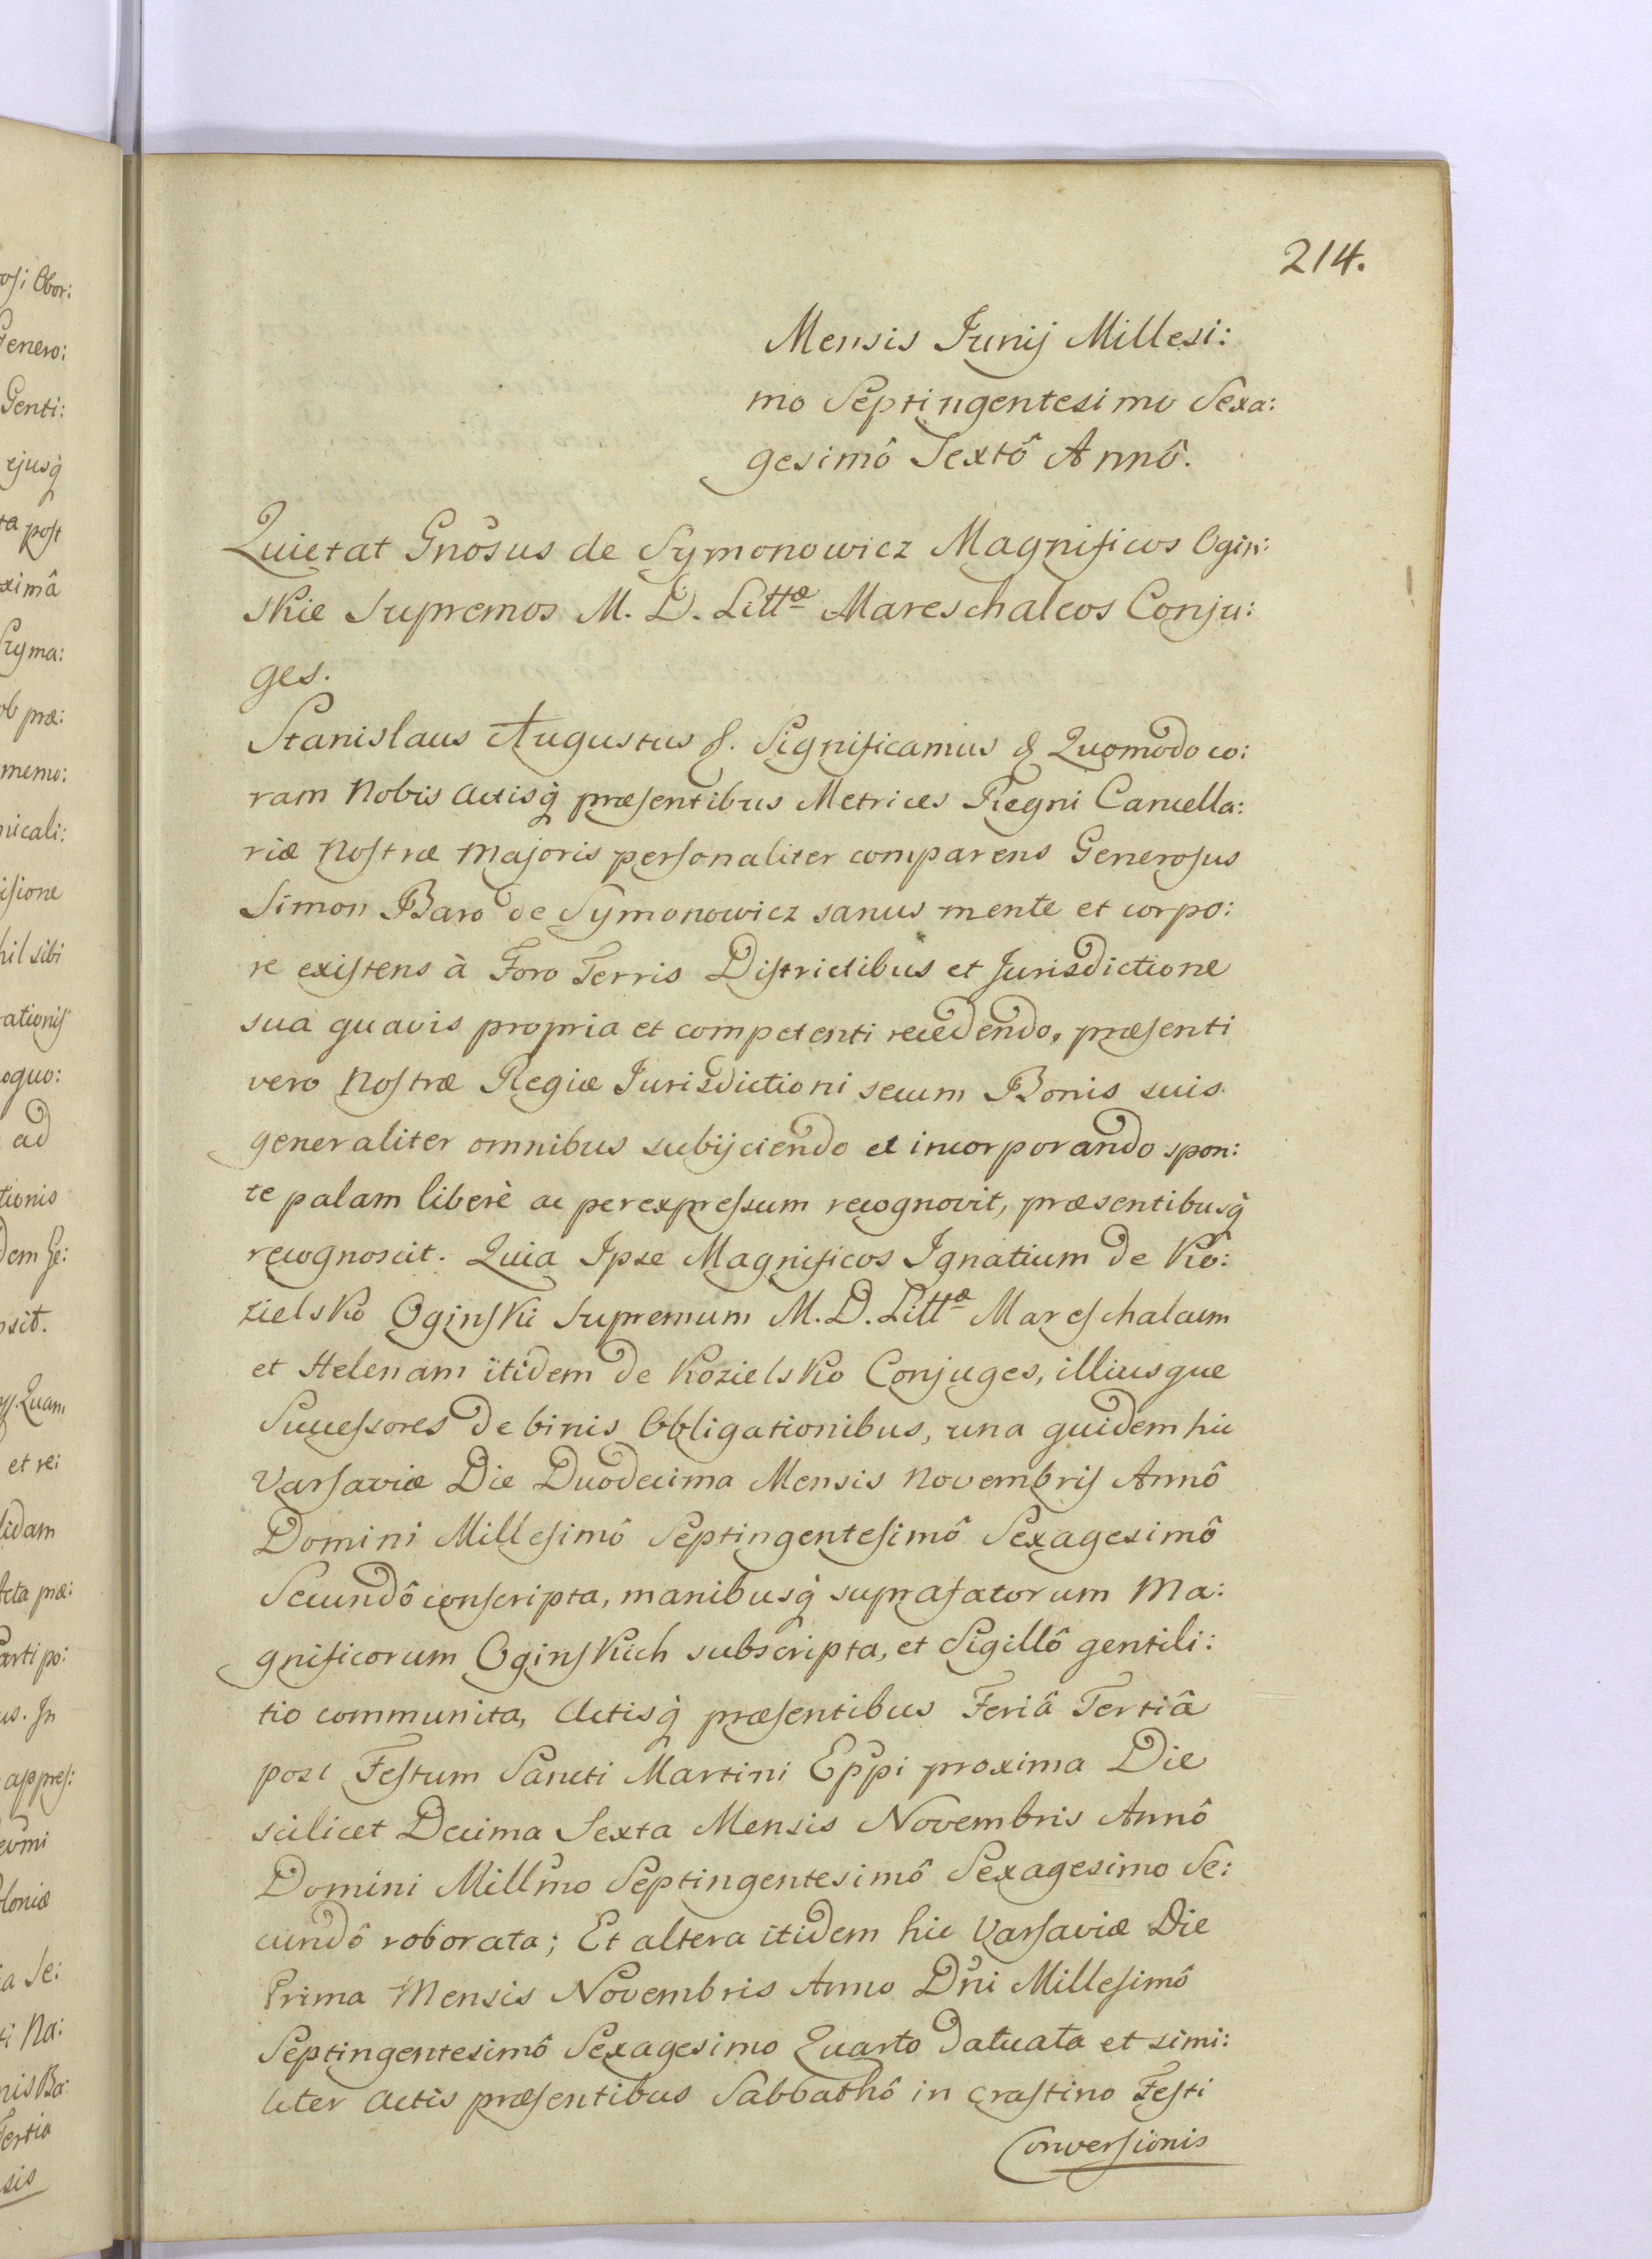 214.
Mensis Junij Millesi:
mo Septingentesimo Sexa:
gesimô Sextô Annô.
Quietat Gnosus de Symonowicz Magnificos Ogin:
skie Supremos M. D. Littæ Mareschalcos Conju:
ges.
Stanislaus Augustus &. Significamus & Quomodo co:
ram Nobis Actisq́ præsentibus Metrices Regni Cancella:
riæ Nostræ Majoris personaliter comparens Generosus
Simon Baro de Symonowicz sanus mente et corpo:
re existens à Foro Terris Districtibus et Jurisdictione
sua quavis propria et competenti recedendo, præsenti
vero Nostræ Regiæ Jurisdictioni secum Bonis suis
generaliter omnibus subijciendo et incorporando spon:
te palam liberè ac per expressum recognovit, præsentibusq́
recognoscit. Quia Ipse Magnificos Ignatium de Ko:
zielsko Oginski Supremum M. D. Littæ Mareschalcum
et Helenam itidem de Kozielsko Conjuges, illiusque
Successores de binis Obligationibus, una quidem hic
Varsaviæ Die Duodecima Mensis Novembris Annô
Domini Millesimô Septingentesimô Sexagesimô
Secundô conscripta, manibusq́ suprafatorum Ma:
gnificorum Oginskich subscripta, et Sigillô gentili:
tio communita, Actisq́ præsentibus Feriâ Tertiâ
post Festum Sancti Martini Eppi proxima Die
scilicet Decima Sexta Mensis Novembris Annô
Domini Millmo Septingentesimô Sexagesimo Se:
cundô roborata; Et altera itidem hic Varsaviæ Die
Prima Mensis Novembris Anno Dni Millesimô
Septingentesimô Sexagesimo Quarto datuata et simi:
liter Actis præsentibus Sabbathô in Crastino Festi
Conversionis